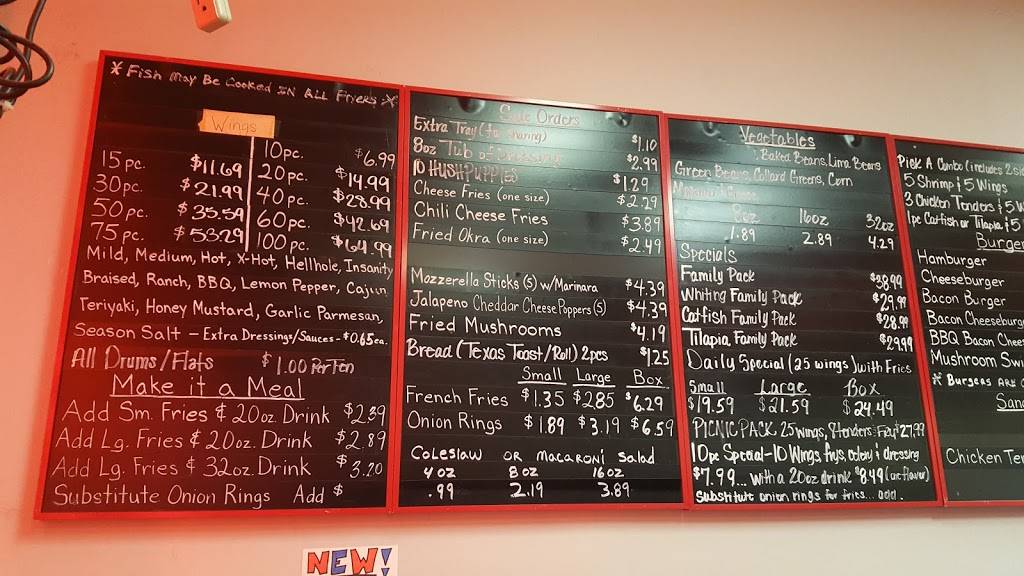 * Fish May Be Cooked IN ALL Fryers *
Wings
15 pc. $11.69
30 pc. $21.99
50 pc. $35.59
75 pc. $53.29
10 pc. $6.99
20 pc. $14.99
40 pc. $28.99
60 pc. $42.69
100 pc. $64.99
Mild, Medium, Hot, X-Hot, Hellhole, Insanity
Braised, Ranch, BBQ, Lemon Pepper, Cajun
Teriyaki, Honey Mustard, Garlic Parmesan,
Season Salt - Extra Dressings/Sauces - $0.65 ea.
All Drums/Flats $1.00 Per Ten
Make it a Meal
Add Sm. Fries & 20oz. Drink $2.39
Add Lg. Fries & 20oz. Drink $2.89
Add Lg. Fries & 32oz. Drink $3.20
Substitute Onion Rings Add $
Side Orders
Extra Tray (for sharing) $1.10
8oz Tub of Dressing $2.99
10 HUSHPUPPIES $1.29
Cheese Fries (one size) $2.29
Chili Cheese Fries $3.89
Fried Okra (one size) $2.49
Mozzerella Sticks (5) w/Marinara $4.39
Jalapeno Cheddar Cheese Poppers (5) $4.39
Fried Mushrooms $4.19
Bread (Texas Toast/Roll) 2pcs $1.25
Small Large Box
French Fries $1.35 $2.85 $6.29
Onion Rings $1.89 $3.19 $6.59
Coleslaw OR macaroni Salad
4oz 8oz 16oz
.99 2.19 3.89
Vegetables
Baked Beans, Lima Beans
Green Beans, Collard Greens, Corn
8oz 16oz 32oz
1.89 2.89 4.29
Specials
Family Pack $38.99
Whiting Family Pack $29.99
Catfish Family Pack $28.99
Tilapia Family Pack $29.99
Daily Special (25 wings) with Fries
Small Large Box
$19.59 $21.59 $24.49
PICNIC PACK 25 Wings, 9 Tenders Fry $27.99
10pc Special-10 Wings, frys, celery & dressing
$7.99... with a 20oz drink $8.49 (one flavor)
Substitute onion rings for fries... add .
Pick A Combo (includes 2 sid
5 Shrimp & 5 Wings
3 Chicken Tenders & 5 W
1pc Catfish or Tilapia & 5
Burger
Hamburger
Cheeseburger
Bacon Burger
Bacon Cheeseburg
BBQ Bacon Chees
Mushroom Swi
* Burgers Are C
Sand
Chicken Ten
NEW!